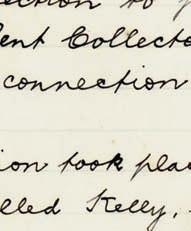 ection to
ent Collecto
connection
ion took pla
lled Kelly,